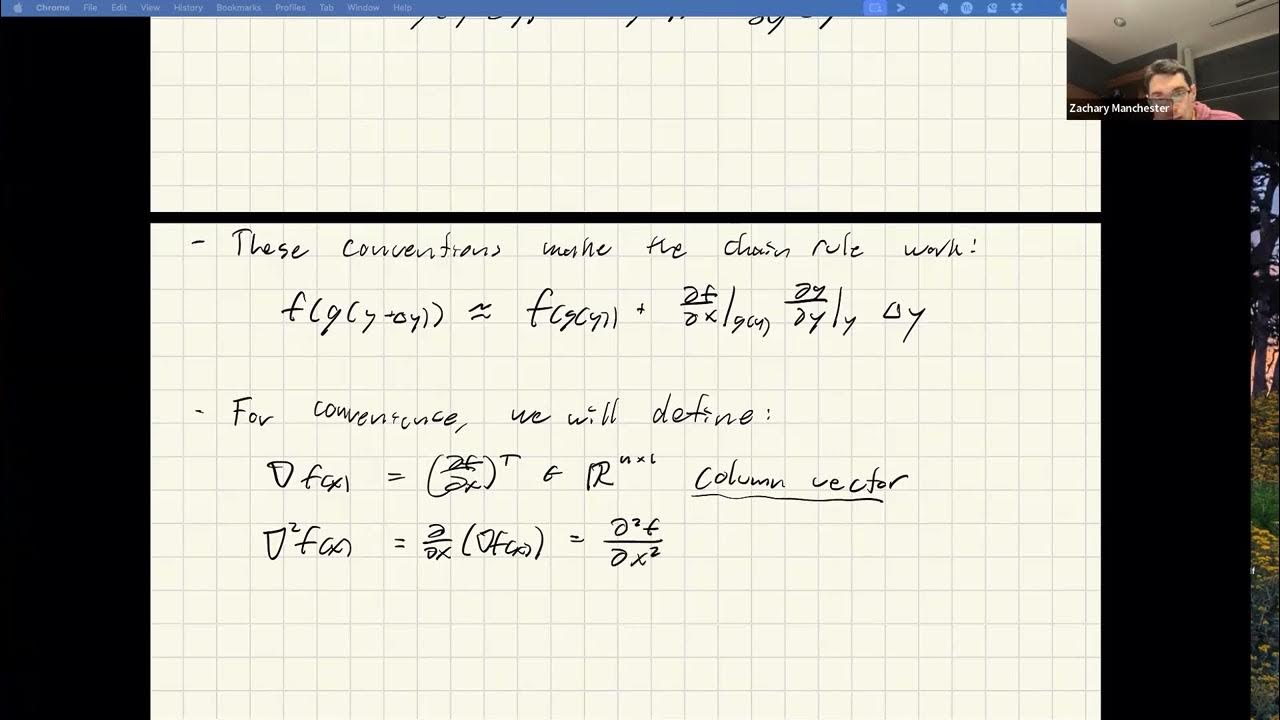 Chrome File Edit View History Bookmarks Profiles Tab Window Help
Zachary Manchester
- These conventions make the chain rule work!
f(g(y+Δy)) ≈ f(g(y)) + ∂f/∂x|g(y) ∂y/∂y|y Δy
- For convenience, we will define:
∇f(x) = (∂f/∂x)^T ∈ ℝ^n×1 column vector
∇²f(x) = ∂/∂x (∇f(x)) = ∂²f/∂x²